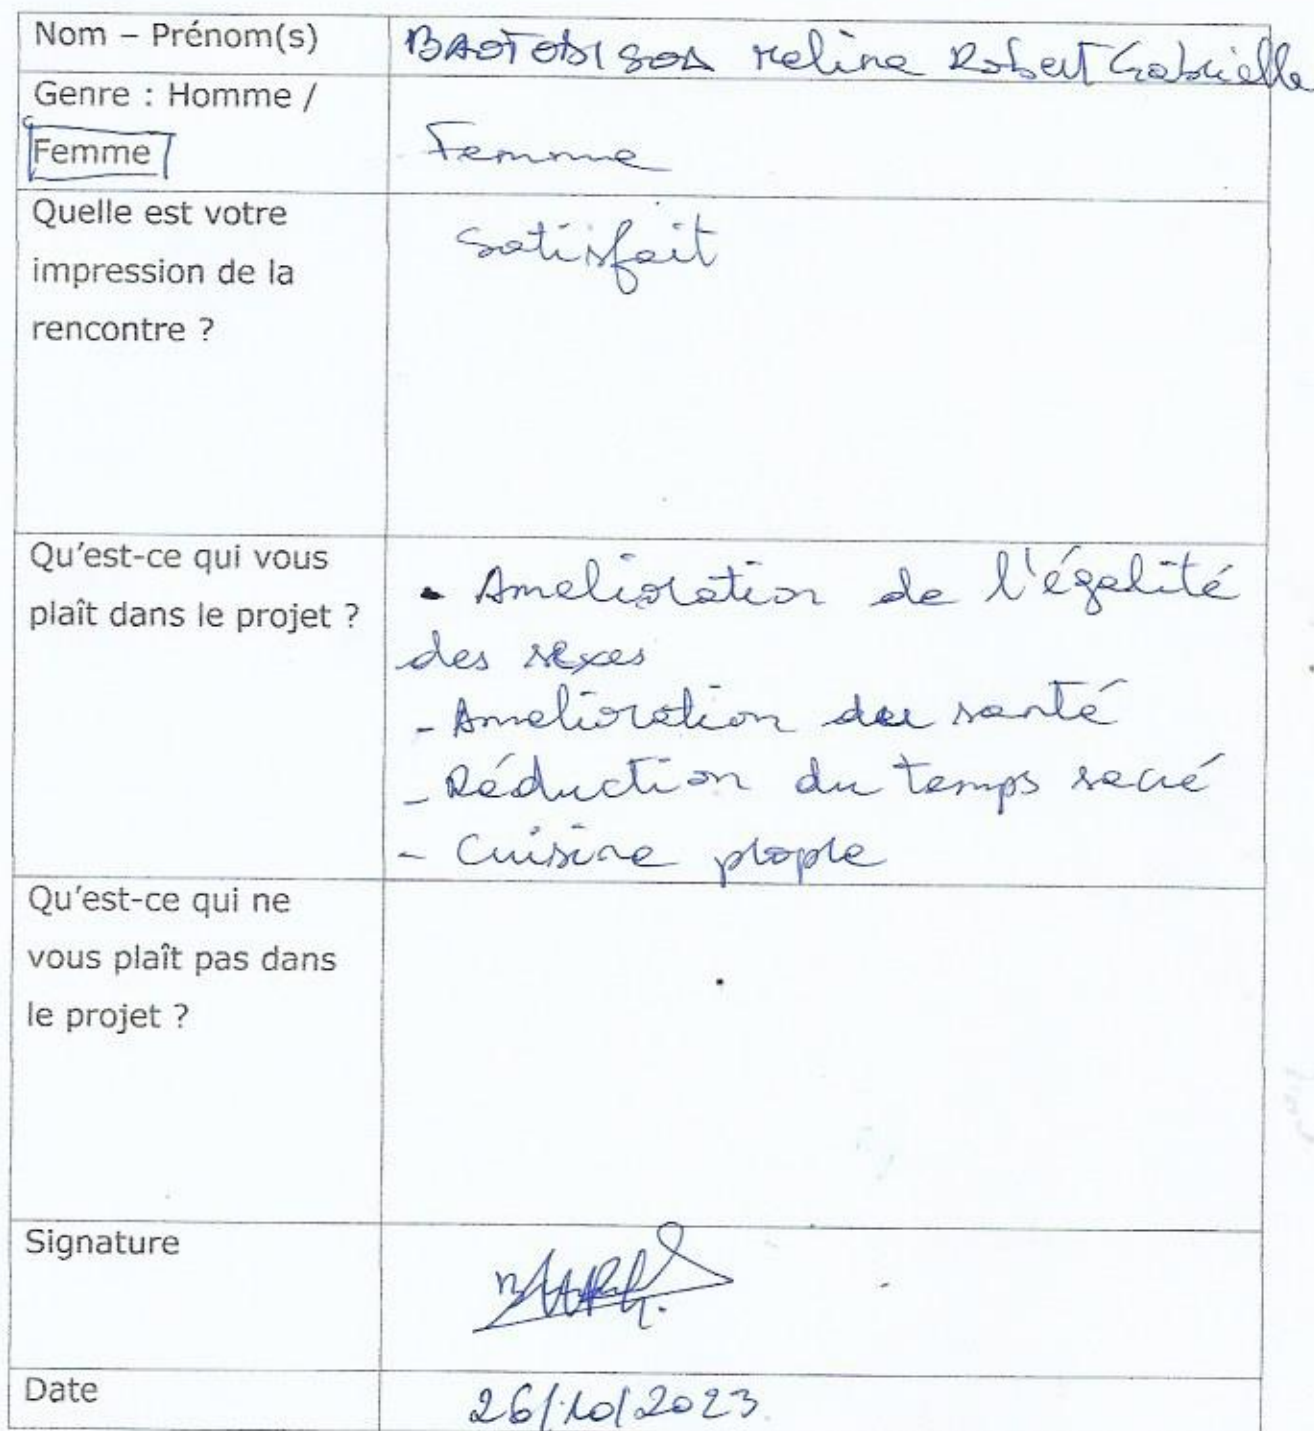 Nom – Prénom(s)
BAOTOBISOA Meline Robert Gabrielle
Genre : Homme /
Femme
Femme
Quelle est votre
impression de la
rencontre ?
Satisfait
Qu'est-ce qui vous
plaît dans le projet ?
• Amelioration de l'égalité
des sexes
- Amelioration du santé
- Réduction du temps
- Cuisine propre
Qu'est-ce qui ne
vous plaît pas dans
le projet ?
Signature
Date
26/10/2023